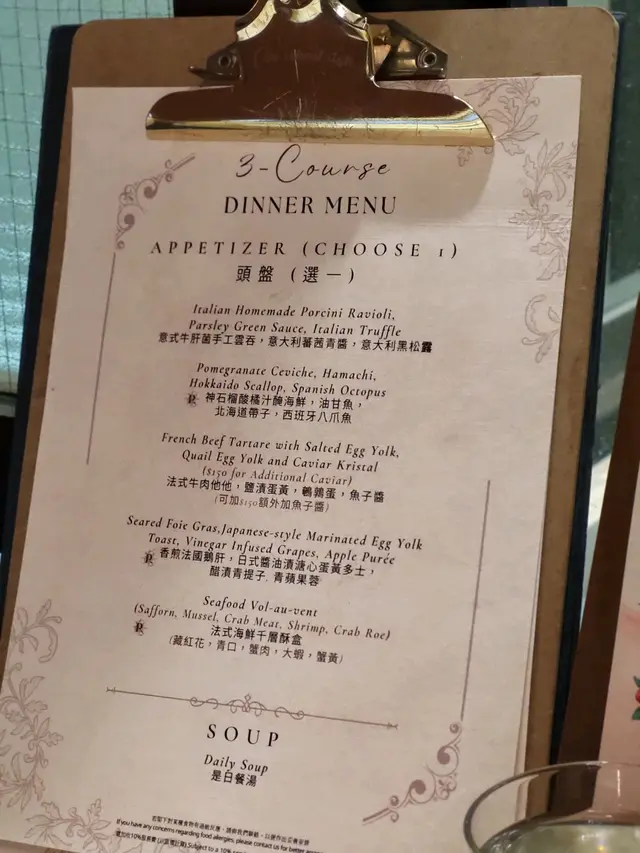 3-Course
DINNER MENU
APPETIZER (CHOOSE 1)
頭盤 (選一)
Italian Homemade Porcini Ravioli,
Parsley Green Sauce, Italian Truffle
意式牛肝菌手工雲吞，意大利蕃茜青醬，意大利黑松露
Pomegranate Ceviche, Hamachi,
Hokkaido Scallop, Spanish Octopus
神石榴酸橘汁醃海鮮，油甘魚，
北海道帶子，西班牙八爪魚
French Beef Tartare with Salted Egg Yolk,
Quail Egg Yolk and Caviar Kristal
($150 for Additional Caviar)
法式牛肉他他，鹽漬蛋黃，鵪鶉蛋，魚子醬
(可加$150額外加魚子醬)
Seared Foie Gras,Japanese-style Marinated Egg Yolk
Toast, Vinegar Infused Grapes, Apple Purée
香煎法國鵝肝，日式醬油漬溏心蛋黃多士，
醋漬青提子, 青蘋果蓉
Seafood Vol-au-vent
(Safforn, Mussel, Crab Meat, Shrimp, Crab Roe)
法式海鮮千層酥盒
(藏紅花，青口，蟹肉，大蝦，蟹黃)
SOUP
Daily Soup
是日餐湯
若閣下對某種食物有過敏反應，請與我們聯絡，以便作出妥善安排
If you have any concerns regarding food allergies, please contact us for better
Subject to a 10%